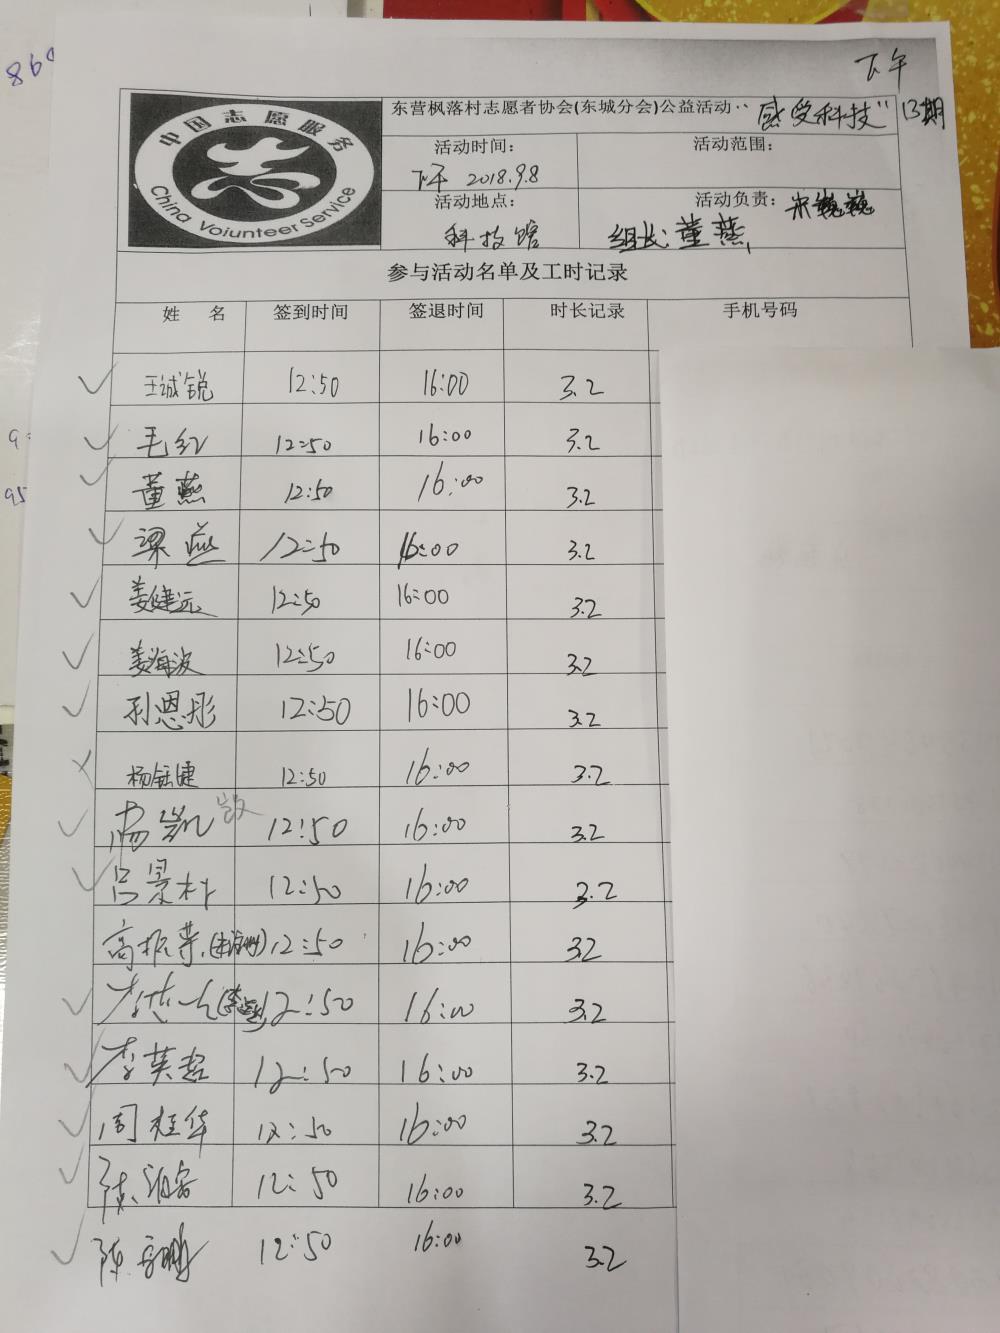 860
下午
东营枫落村志愿者协会(东城分会)公益活动··"感受科技"13期
中国志愿服务
China Voiunteer Service
活动时间： 活动范围：
下午 2018.9.8
活动地点： 活动负责：宋巍巍
科技馆 组长 董燕
参与活动名单及工时记录
姓 名 签到时间 签退时间 时长记录 手机号码
王诚锐 12:50 16:00 3.2
毛红 12:50 16:00 3.2
董燕 12:50 16:00 3.2
梁燕 12:50 16:00 3.2
姜健元 12:50 16:00 3.2
姜海波 12:50 16:00 3.2
刘恩彤 12:50 16:00 3.2
杨钰婕 12:50 16:00 3.2
杨凯 12:50 16:00 3.2
吕景村 12:50 16:00 3.2
高振芳 12:50 16:00 3.2
李 12:50 16:00 3.2
李英超 12:50 16:00 3.2
周桂华 12:50 16:00 3.2
陈 12:50 16:00 3.2
陈 12:50 16:00 3.2
95